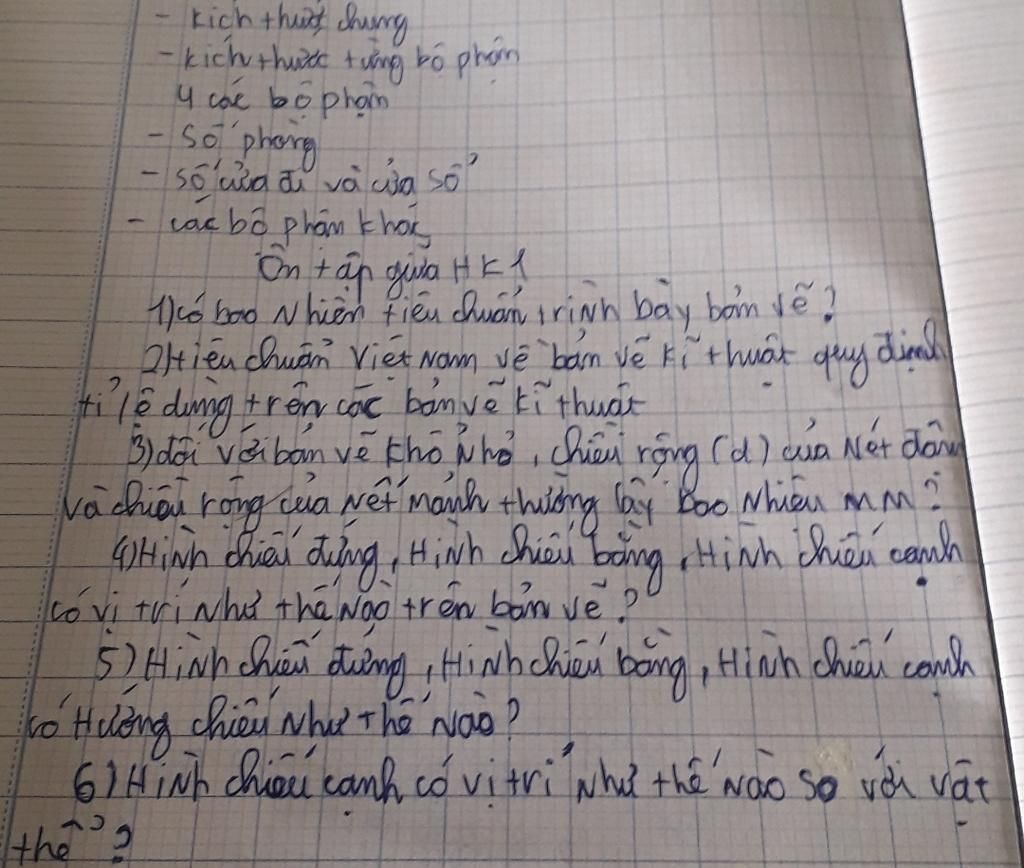 - kích thước chung
- kích thước từng bộ phận
4 các bộ phận
- số phòng
- số cửa đi và cửa sổ
- các bộ phận khác
Ôn tập giữa HK1
1) có bao nhiên tiêu chuẩn trình bày bản vẽ?
2) tiêu chuẩn Việt Nam về bản vẽ kĩ thuật quy định
tỉ lệ dùng trên các bản vẽ kĩ thuật
3) đối với bản vẽ khổ nhỏ, chiều rộng (d) của nét đậm
và chiều rộng của nét mảnh thường lấy bao nhiêu mm?
4) Hình chiếu đứng, Hình chiếu bằng, Hình chiếu cạnh
có vị trí như thế nào trên bản vẽ?
5) Hình chiếu đứng, Hình chiếu bằng, Hình chiếu cạnh
có Hướng chiếu như thế nào?
6) Hình chiếu cạnh có vị trí như thế nào so với vật
thể?